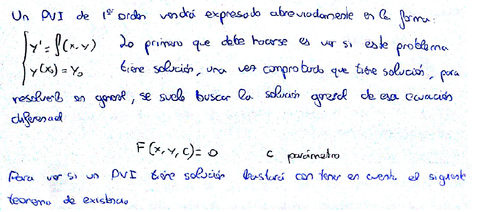 Un PVI de 1er orden vendrá expresado abreviadamente en la forma:
{ y' = f(x, y)   Lo primero que debe hacerse es ver si este problema
{ y(x₀) = y₀   tiene solución, una vez comprobado que tiene solución, para
resolverlo en general, se suele buscar la solución general de esa ecuación
diferencial
F(x, y, C) = 0   C parámetro
Para ver si un PVI tiene solución bastará con tener en cuenta el siguiente
teorema de existencia